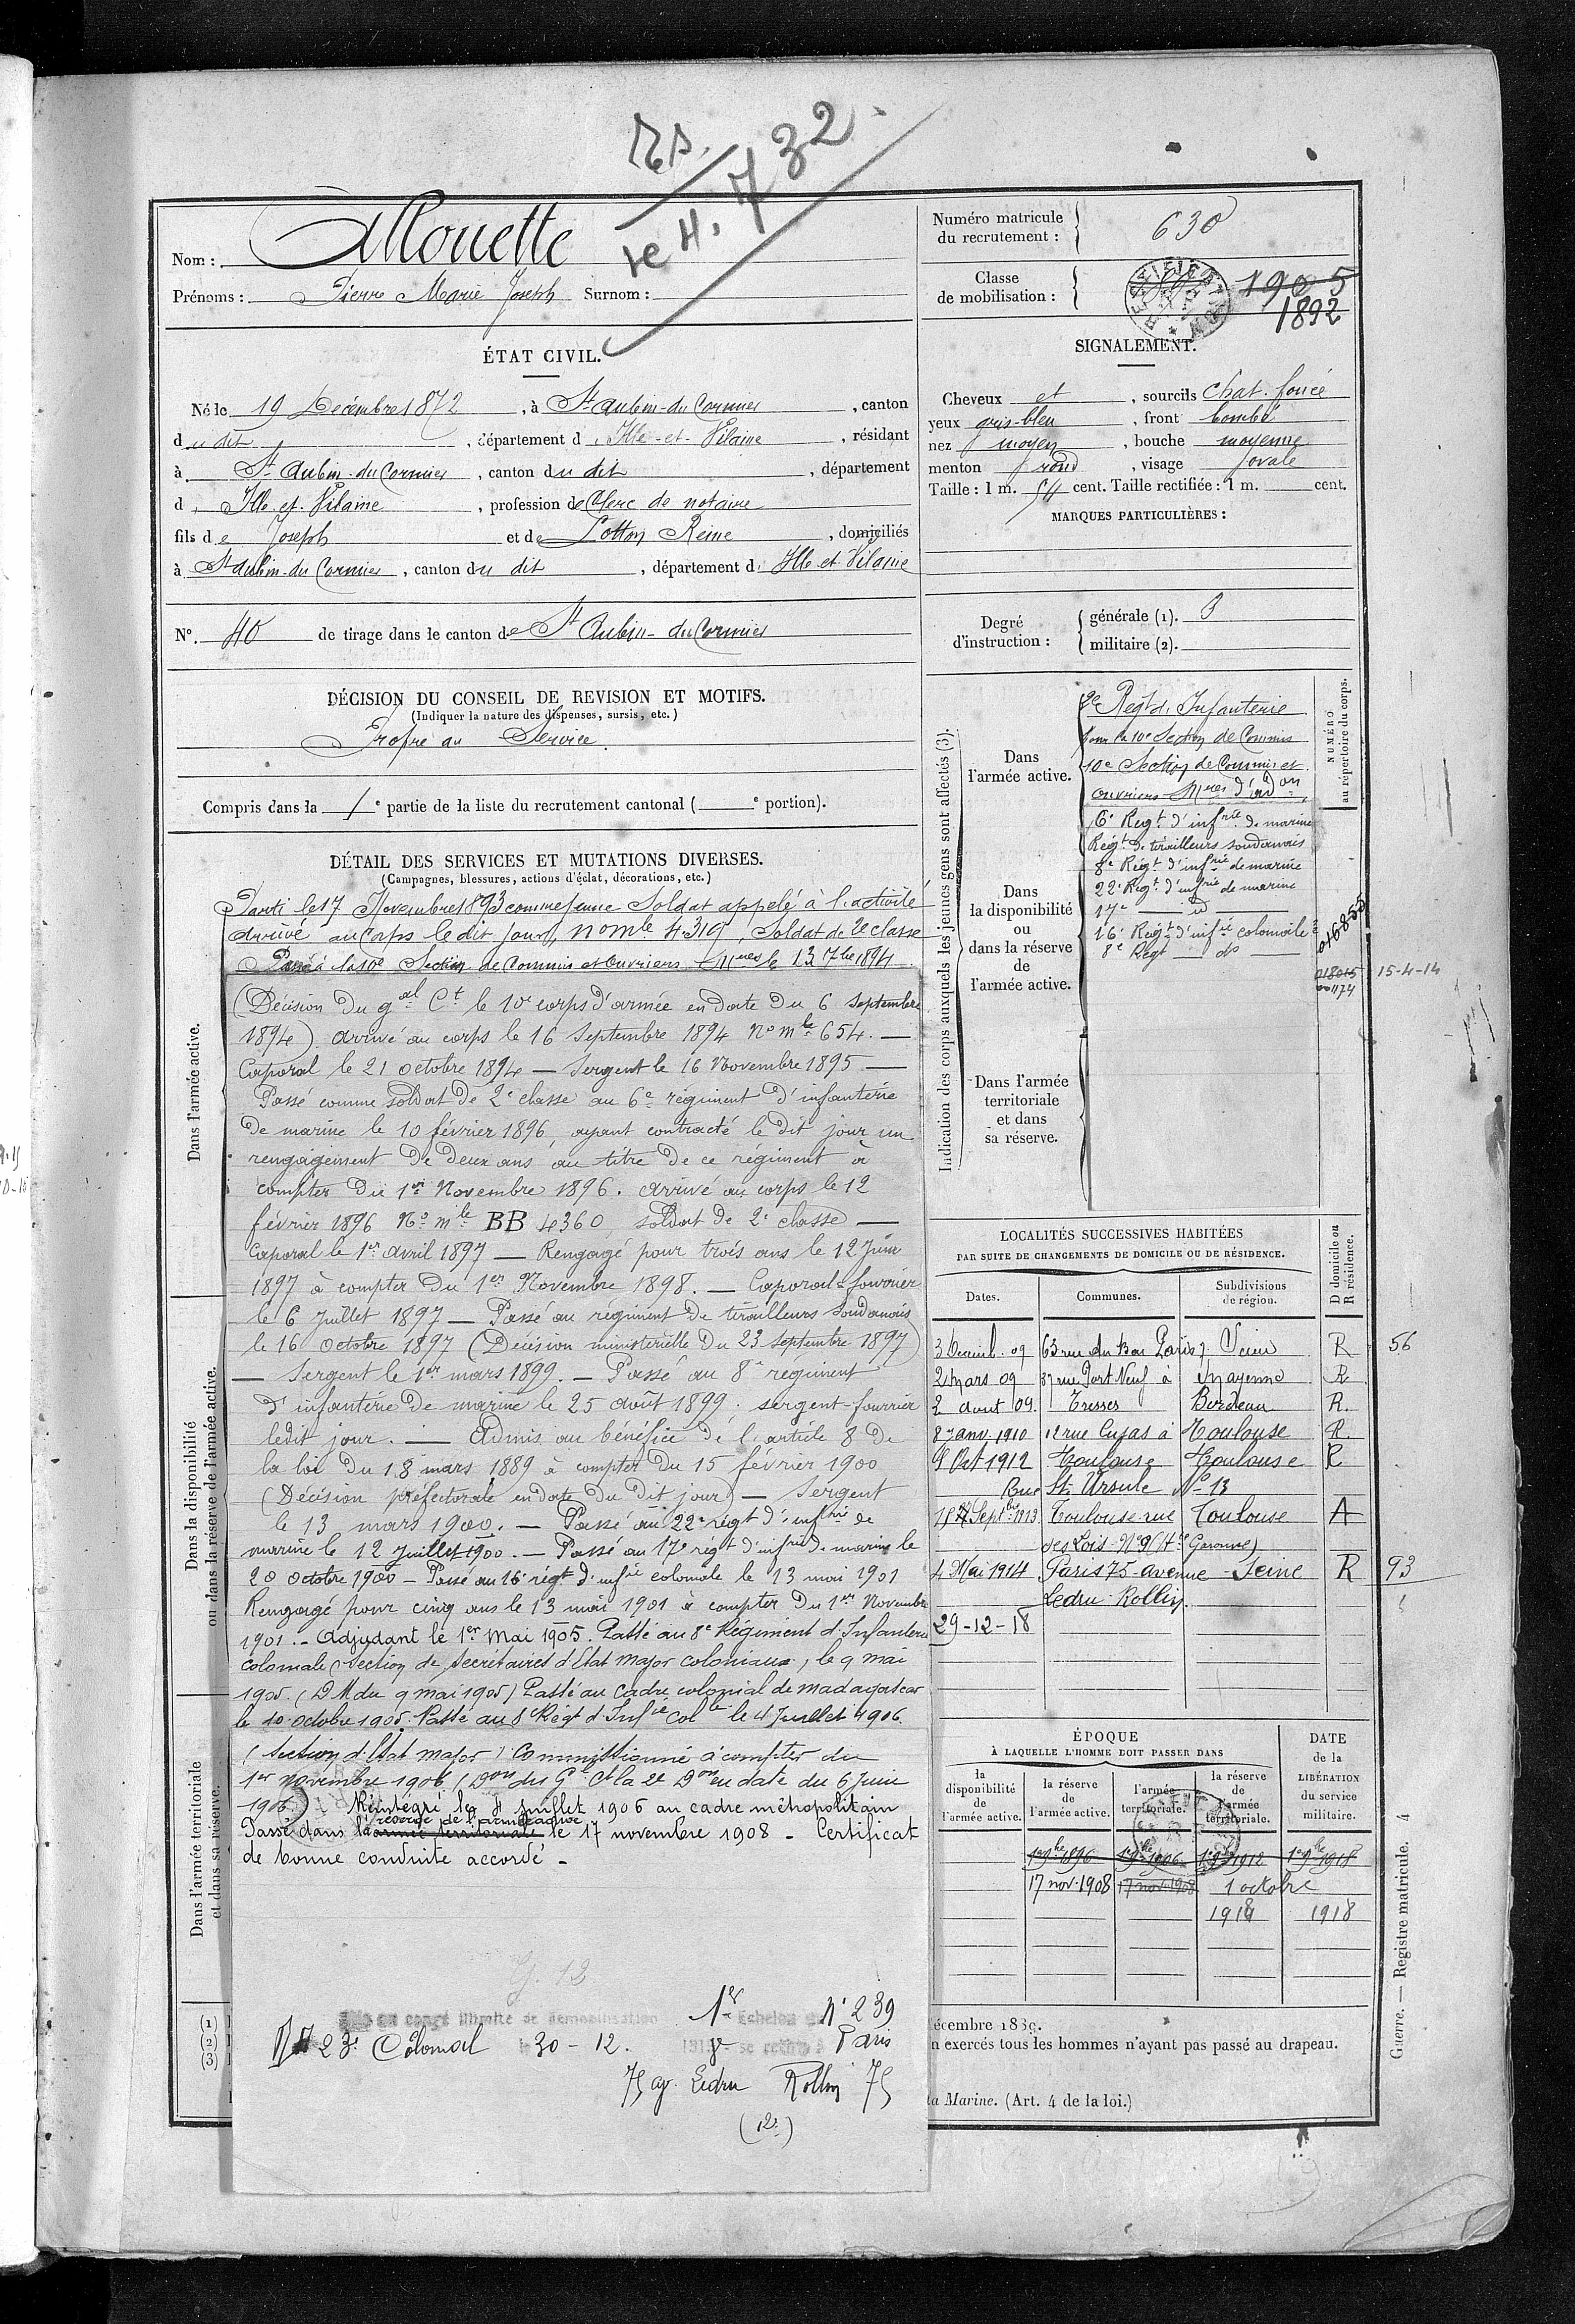 Rs.
re 4. 732.
Nom : Mouette
Prénoms : Pierre Marie Joseph Surnom :
Numéro matricule du recrutement : 630
Classe de mobilisation : 1905
1892
ÉTAT CIVIL.
Né le 19 Décembre 1872, à St Aubin-du-Cormier, canton
du dit, département d'Ille-et-Vilaine, résidant
à St Aubin-du-Cormier, canton du dit, département
d'Ille-et-Vilaine, profession de Clerc de notaire
fils de Joseph et de Lotton Reine, domiciliés
à St Aubin-du-Cormier, canton du dit, département d'Ille-et-Vilaine
N° 40 de tirage dans le canton de St Aubin-du-Cormier
SIGNALEMENT.
Cheveux et, sourcils chat. foncé
yeux gris-bleu, front bombé
nez moyen, bouche moyenne
menton rond, visage ovale
Taille : 1 m. 54 cent. Taille rectifiée : 1 m. cent.
MARQUES PARTICULIÈRES :
Degré d'instruction : générale (1). 3
militaire (2).
DÉCISION DU CONSEIL DE REVISION ET MOTIFS.
(Indiquer la nature des dispenses, sursis, etc.)
Propre au Service.
Compris dans la 1e partie de la liste du recrutement cantonal ( e portion).
DÉTAIL DES SERVICES ET MUTATIONS DIVERSES.
(Campagnes, blessures, actions d'éclat, décorations, etc.)
Dans l'armée active.
Parti le 17 Novembre 1893 comme jeune Soldat appelé à l'activité
Arrivé au Corps le dit jour, n° mle 4319, Soldat de 2e classe
Passé à la 10e Section de Commis et Ouvriers Mres le 13 7bre 1894
(Décision du gal Ct le 10e corps d'armée en date du 6 septembre
1894) arrivé au corps le 16 septembre 1894 No mle 654. —
Caporal le 21 octobre 1894 — Sergent le 16 Novembre 1895 —
Passé comme soldat de 2e classe au 6e régiment d'infanterie
de marine le 10 février 1896, ayant contracté le dit jour un
rengagement de deux ans au titre de ce régiment à
compter du 1er Novembre 1896. arrivé au corps le 12
février 1896 No mle BB 4360, soldat de 2e classe —
Caporal le 1er avril 1897 — Rengagé pour trois ans le 12 Juin
1897 à compter du 1er Novembre 1898. — Caporal-fourrier
le 6 Juillet 1897 — Passé au régiment de tirailleurs soudanais
le 16 octobre 1897 (Décision ministerielle du 23 septembre 1897)
— Sergent le 1er mars 1899. — Passé au 8e régiment
d'infanterie de marine le 25 août 1899. sergent-fourrier
ledit jour. — Admis au bénéfice de l'article 8 de
la loi du 18 mars 1889 à compter du 15 février 1900
(Décision préfectorale en date du dit jour) — Sergent
le 13 mars 1900. — Passé au 22e régt d'infrie de
marine le 12 juillet 1900. — Passé au 17e régt d'infrie de marine le
20 octobre 1900 — Passé au 16e régt d'infie coloniale le 13 mai 1901
Rengagé pour cinq ans le 13 mai 1901 à compter du 1er Novembre
1901. — Adjudant le 1er Mai 1905. Passé au 8e Régiment d'Infanterie
coloniale (Section de secrétaires d'Etat Major coloniaux), le 9 mai
1905. (DM du 9 mai 1905) Passé au Cadre colonial de madagascar
le 10 octobre 1905. Passé au 8e Régt d'Infie Colle le 4 Juillet 1906.
(Section d'Etat major) Commissionné à compter du
1er novembre 1906 (Don du Gl Ct la 2e Don en date du 6 juin
1906) Réintégré le 4 juillet 1906 au cadre métropolitain
réserve de l'armée active
Passé dans l'armée territoriale le 17 novembre 1908 — Certificat
de bonne conduite accordé —
Dans la disponibilité ou dans la réserve de l'armée active.
Dans l'armée territoriale et dans sa réserve.
en congé illimité de démobilisation 1er Echelon N° 239
23e Colonial le 30-12. se retire à Paris
75 av. Ledru Rollin 75
(12e)
(1)
(2)
(3)
Indication des corps auxquels les jeunes gens sont affectés (3).
NUMÉRO au répertoire du corps.
Dans l'armée active.
2e Régt d'Infanterie
pour la 10e Section de Commis
10e Section de Commis et
ouvriers Mres d'adon
6e Regt d'infrie de marine
Régt de tirailleurs soudanais
8e Régt d'infrie de marine
22e Régt d'infrie de marine
17e — id —
Dans la disponibilité ou dans la réserve de l'armée active.
16e Regt d'infie coloniale
8e Regt — do —
016855
018015
001174
15-4-14
Dans l'armée territoriale et dans sa réserve.
LOCALITÉS SUCCESSIVES HABITÉES
PAR SUITE DE CHANGEMENTS DE DOMICILE OU DE RÉSIDENCE.
Dates. Communes. Subdivisions de région. D domicile ou R résidence.
3 09 63 rue du Bac Paris 7 Seine R 56
2 Mars 09 37 rue Port Neuf à Mayenne R
2 aout 09. Tresses Bordeaux R.
8 Janv. 1910 12 rue Cujas à Toulouse R.
9 Oct 1912 Toulouse Toulouse R
Rue St. Ursule N° 13
Septbre 1913 Toulouse rue Toulouse A
des Lois N° 9 (Hte Garonne)
4 Mai 1914 Paris 75 avenue Seine R 93
Ledru-Rollin.
29-12-18
ÉPOQUE
À LAQUELLE L'HOMME DOIT PASSER DANS
la disponibilité de l'armée active. la réserve de l'armée active. l'armée territoriale. la réserve de l'armée territoriale.
DATE de la LIBÉRATION du service militaire.
1er 9bre 1896 1er 9bre 1906 1er 9bre 1912 1er 9bre 1918
17 nov. 1908 17 nov. 1908 1 octobre
1918 1918
écembre 1889.
n exercés tous les hommes n'ayant pas passé au drapeau.
la Marine. (Art. 4 de la loi.)
Guerre. — Registre matricule. 4